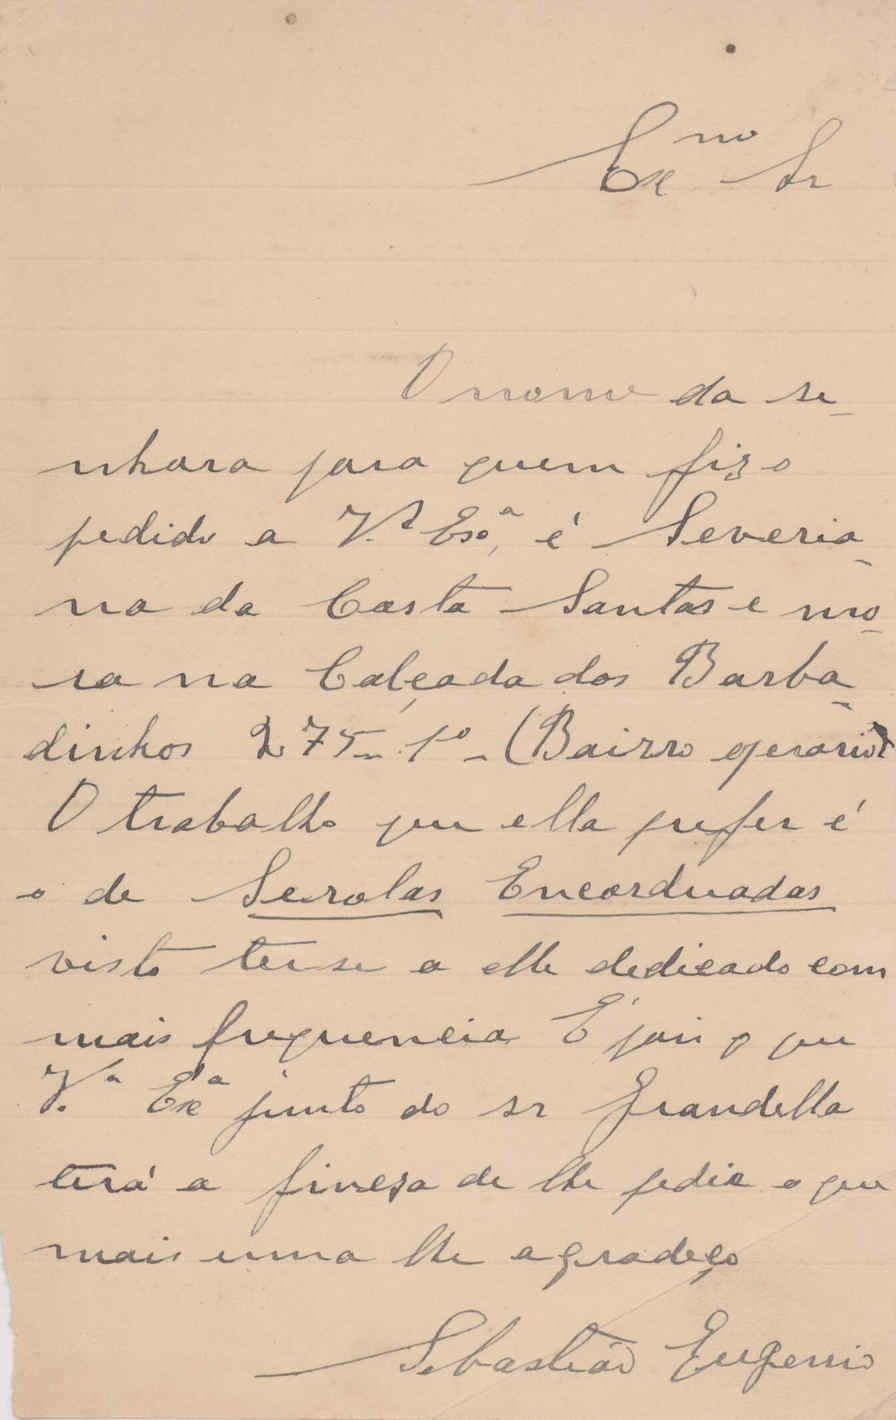 Exmo Sr
O nome da se-
nhora para quem fiz o
pedido a V.ª Exª, é Severia-
na da Costa Santos e mo-
ra na Calçada dos Barba-
dinhos 275-1º-(Bairro operário)
O trabalho que ella prefer é
o de Serolas Encorduadas
visto ter-se a elle dedicado com
mais frequencia E' pois o que
V.ª Exª junto do sr Grandella
terá a finesa de lhe pedir o que
mais uma lhe agradeço
Sebastião Eugenio